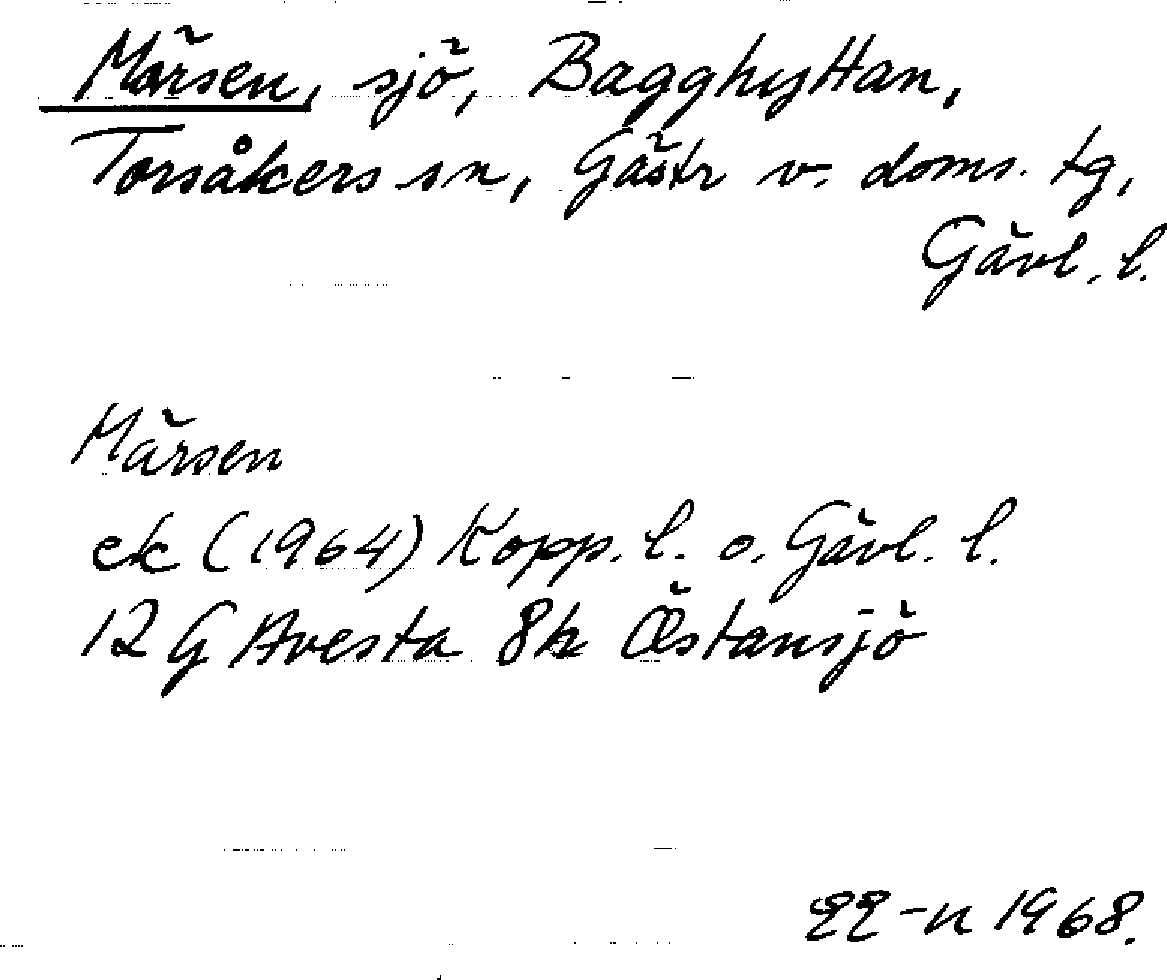 Märsen, sjö, Bagghyttan,
Torsåkers sn, Gästr v. doms. tg,
Gävl. l.
Märsen
ek (1964) Kopp. l. o. Gävl. l.
12 G Avesta 8h Östansjö
EE-n 1968.